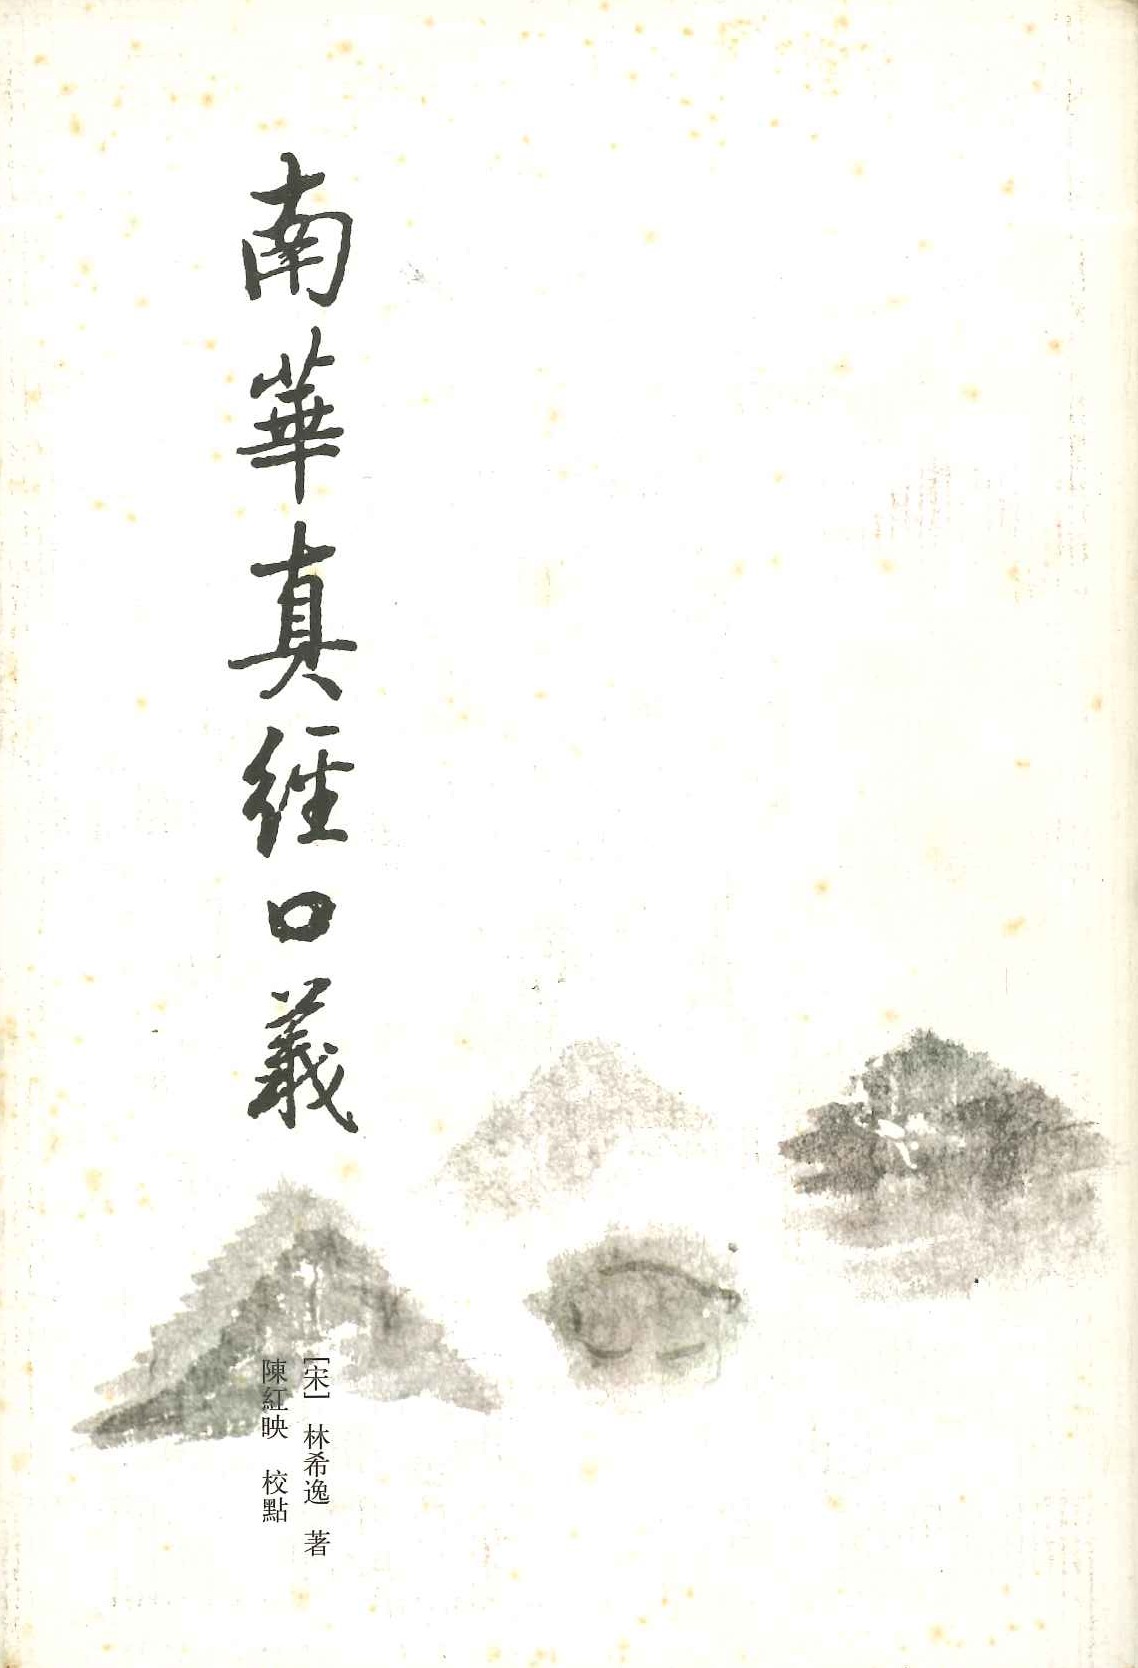 南華真經口義
［宋］ 林希逸 著
陳紅映 校點